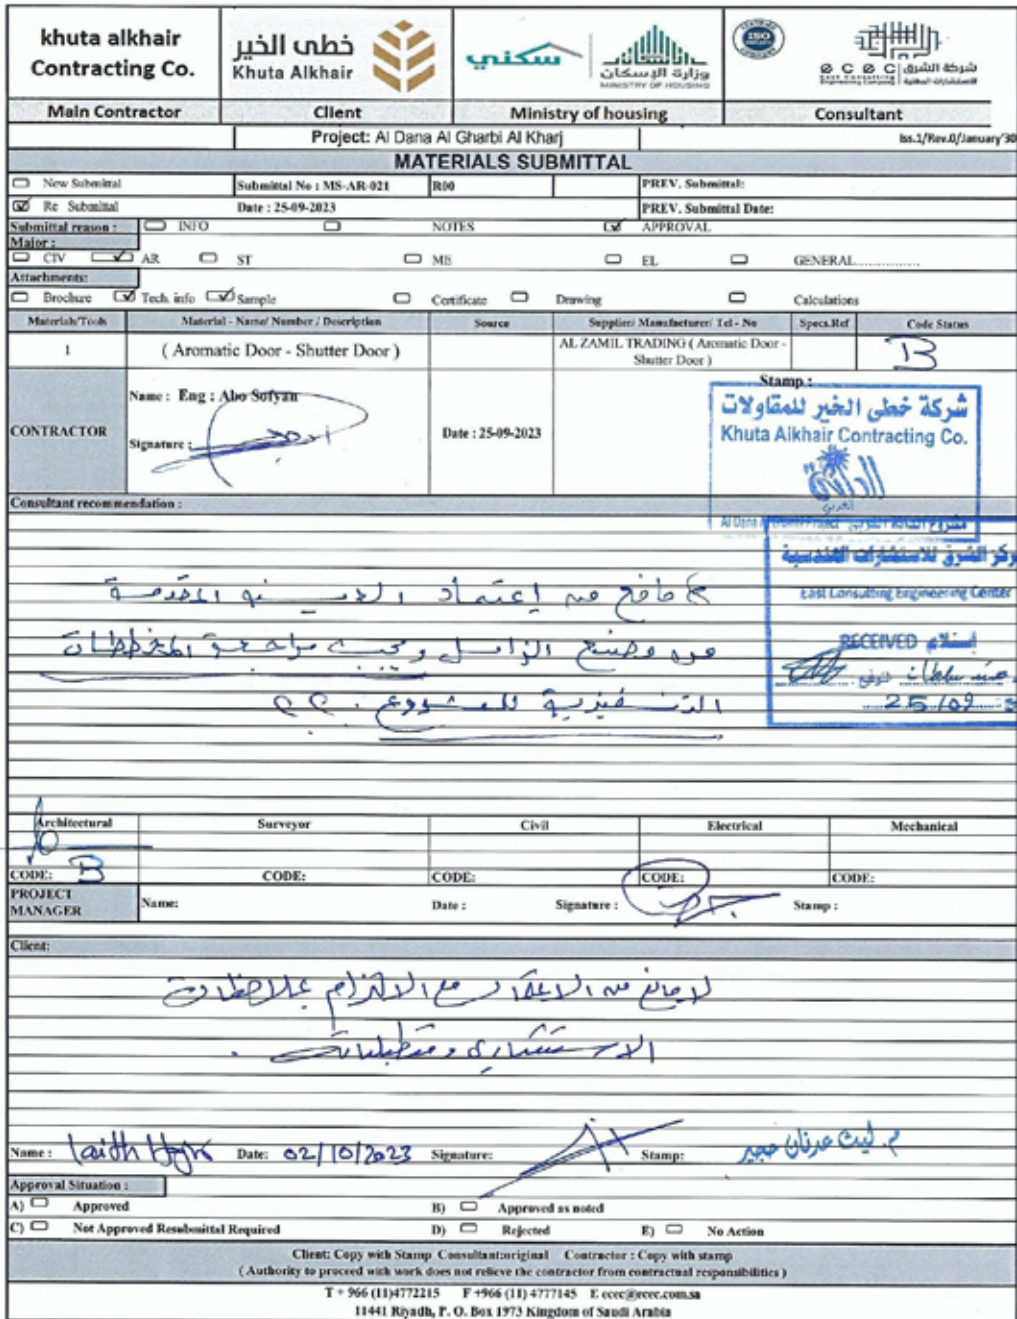 khuta alkhair
Contracting Co.
خطى الخير
Khuta Alkhair
سكني
وزارة الإسكان
MINISTRY OF HOUSING
ISO
e c e c شركة الشرق
Main Contractor Client Ministry of housing Consultant
Project: Al Dana Al Gharbi Al Kharj Iss.1/Rev.0/January'30
MATERIALS SUBMITTAL
New Submittal Submittal No : MS-AR-021 R00 PREV. Submittal:
Re Submittal Date : 25-09-2023 PREV. Submittal Date:
Submittal reason : INFO NOTES APPROVAL
Major :
CIV AR ST ME EL GENERAL..............
Attachments:
Brochure Tech. info Sample Certificate Drawing Calculations
Materials/Tools Material - Name/ Number / Description Source Supplier/ Manufacturer/ Tel - No Specs.Ref Code Status
1 ( Aromatic Door - Shutter Door ) AL ZAMIL TRADING ( Aromatic Door - Shutter Door ) B
CONTRACTOR
Name : Eng : Abo Sofyan
Signature :
Date : 25-09-2023
Stamp :
شركة خطى الخير للمقاولات
Khuta Alkhair Contracting Co.
Consultant recommendation :
مركز الشرق للاستشارات الهندسية
East Consulting Engineering Center
RECEIVED إستلام
25/09
لا مانع من إعتماد العينه المقدمة
من مصنع الزامل ويجب مراجعة المخططات
التنفيذية للمشروع
Architectural Surveyor Civil Electrical Mechanical
CODE: B CODE: CODE: CODE: CODE:
PROJECT MANAGER Name: Date : Signature : Stamp :
Client:
لا مانع من الاعتماد مع الالتزام بملاحظات
الاستشاري ومتطلباته .
Name : Laith Date: 02/10/2023 Signature: Stamp: م. ليث عدنان حجير
Approval Situation :
A) Approved B) Approved as noted
C) Not Approved Resubmittal Required D) Rejected E) No Action
Client: Copy with Stamp Consultant:original Contractor : Copy with stamp
( Authority to proceed with work does not relieve the contractor from contractual responsibilities )
T + 966 (11)4772215 F +966 (11) 4777145 E ecec@ecec.com.sa
11441 Riyadh, P. O. Box 1973 Kingdom of Saudi Arabia